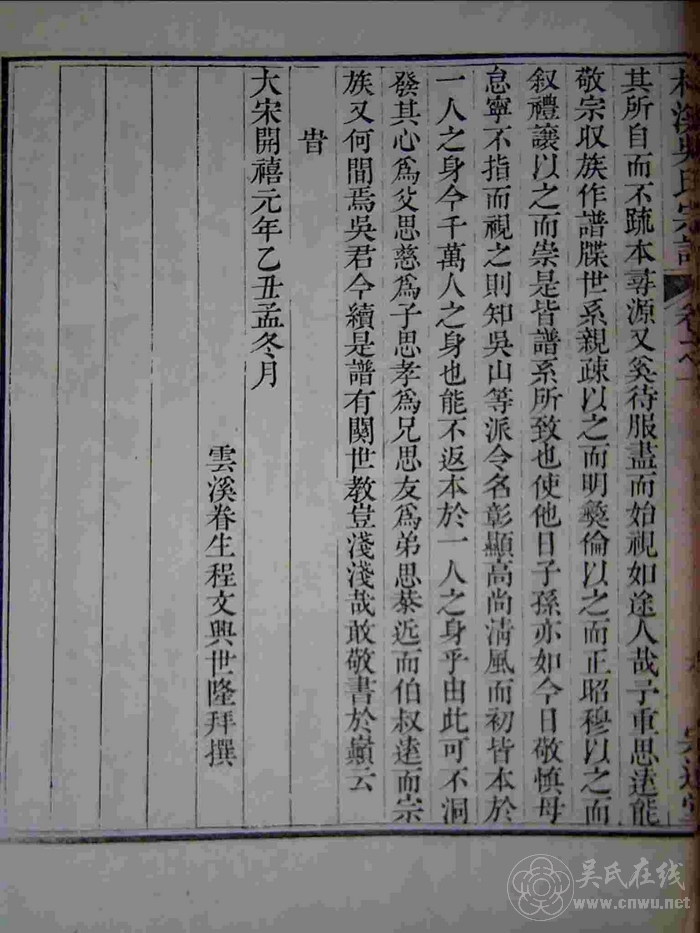 溪吳氏宗譜
卷之
其所自而不䟽本尋源又奚待服盡而始視如途人哉子重思逺能
敬宗収族作譜牒世系親疎以之而明彜倫以之而正昭穆以之而
叙禮讓以之而崇是皆譜系所致也使他日子孫亦如今日敬慎毋
怠寧不指而視之則知吳山等派令名彰顯高尚淸風而初皆本於
一人之身今千萬人之身也能不返本於一人之身乎由此可不洞
發其心爲父思慈爲子思孝爲兄思友爲弟思恭近而伯叔逺而宗
族又何間焉吳君今續是譜有関世教豈淺淺哉敢敬書於巔云
旹
大宋開禧元年乙丑孟冬月
雲溪眷生程文興世隆拜撰
吴氏在线
www.cnwu.net